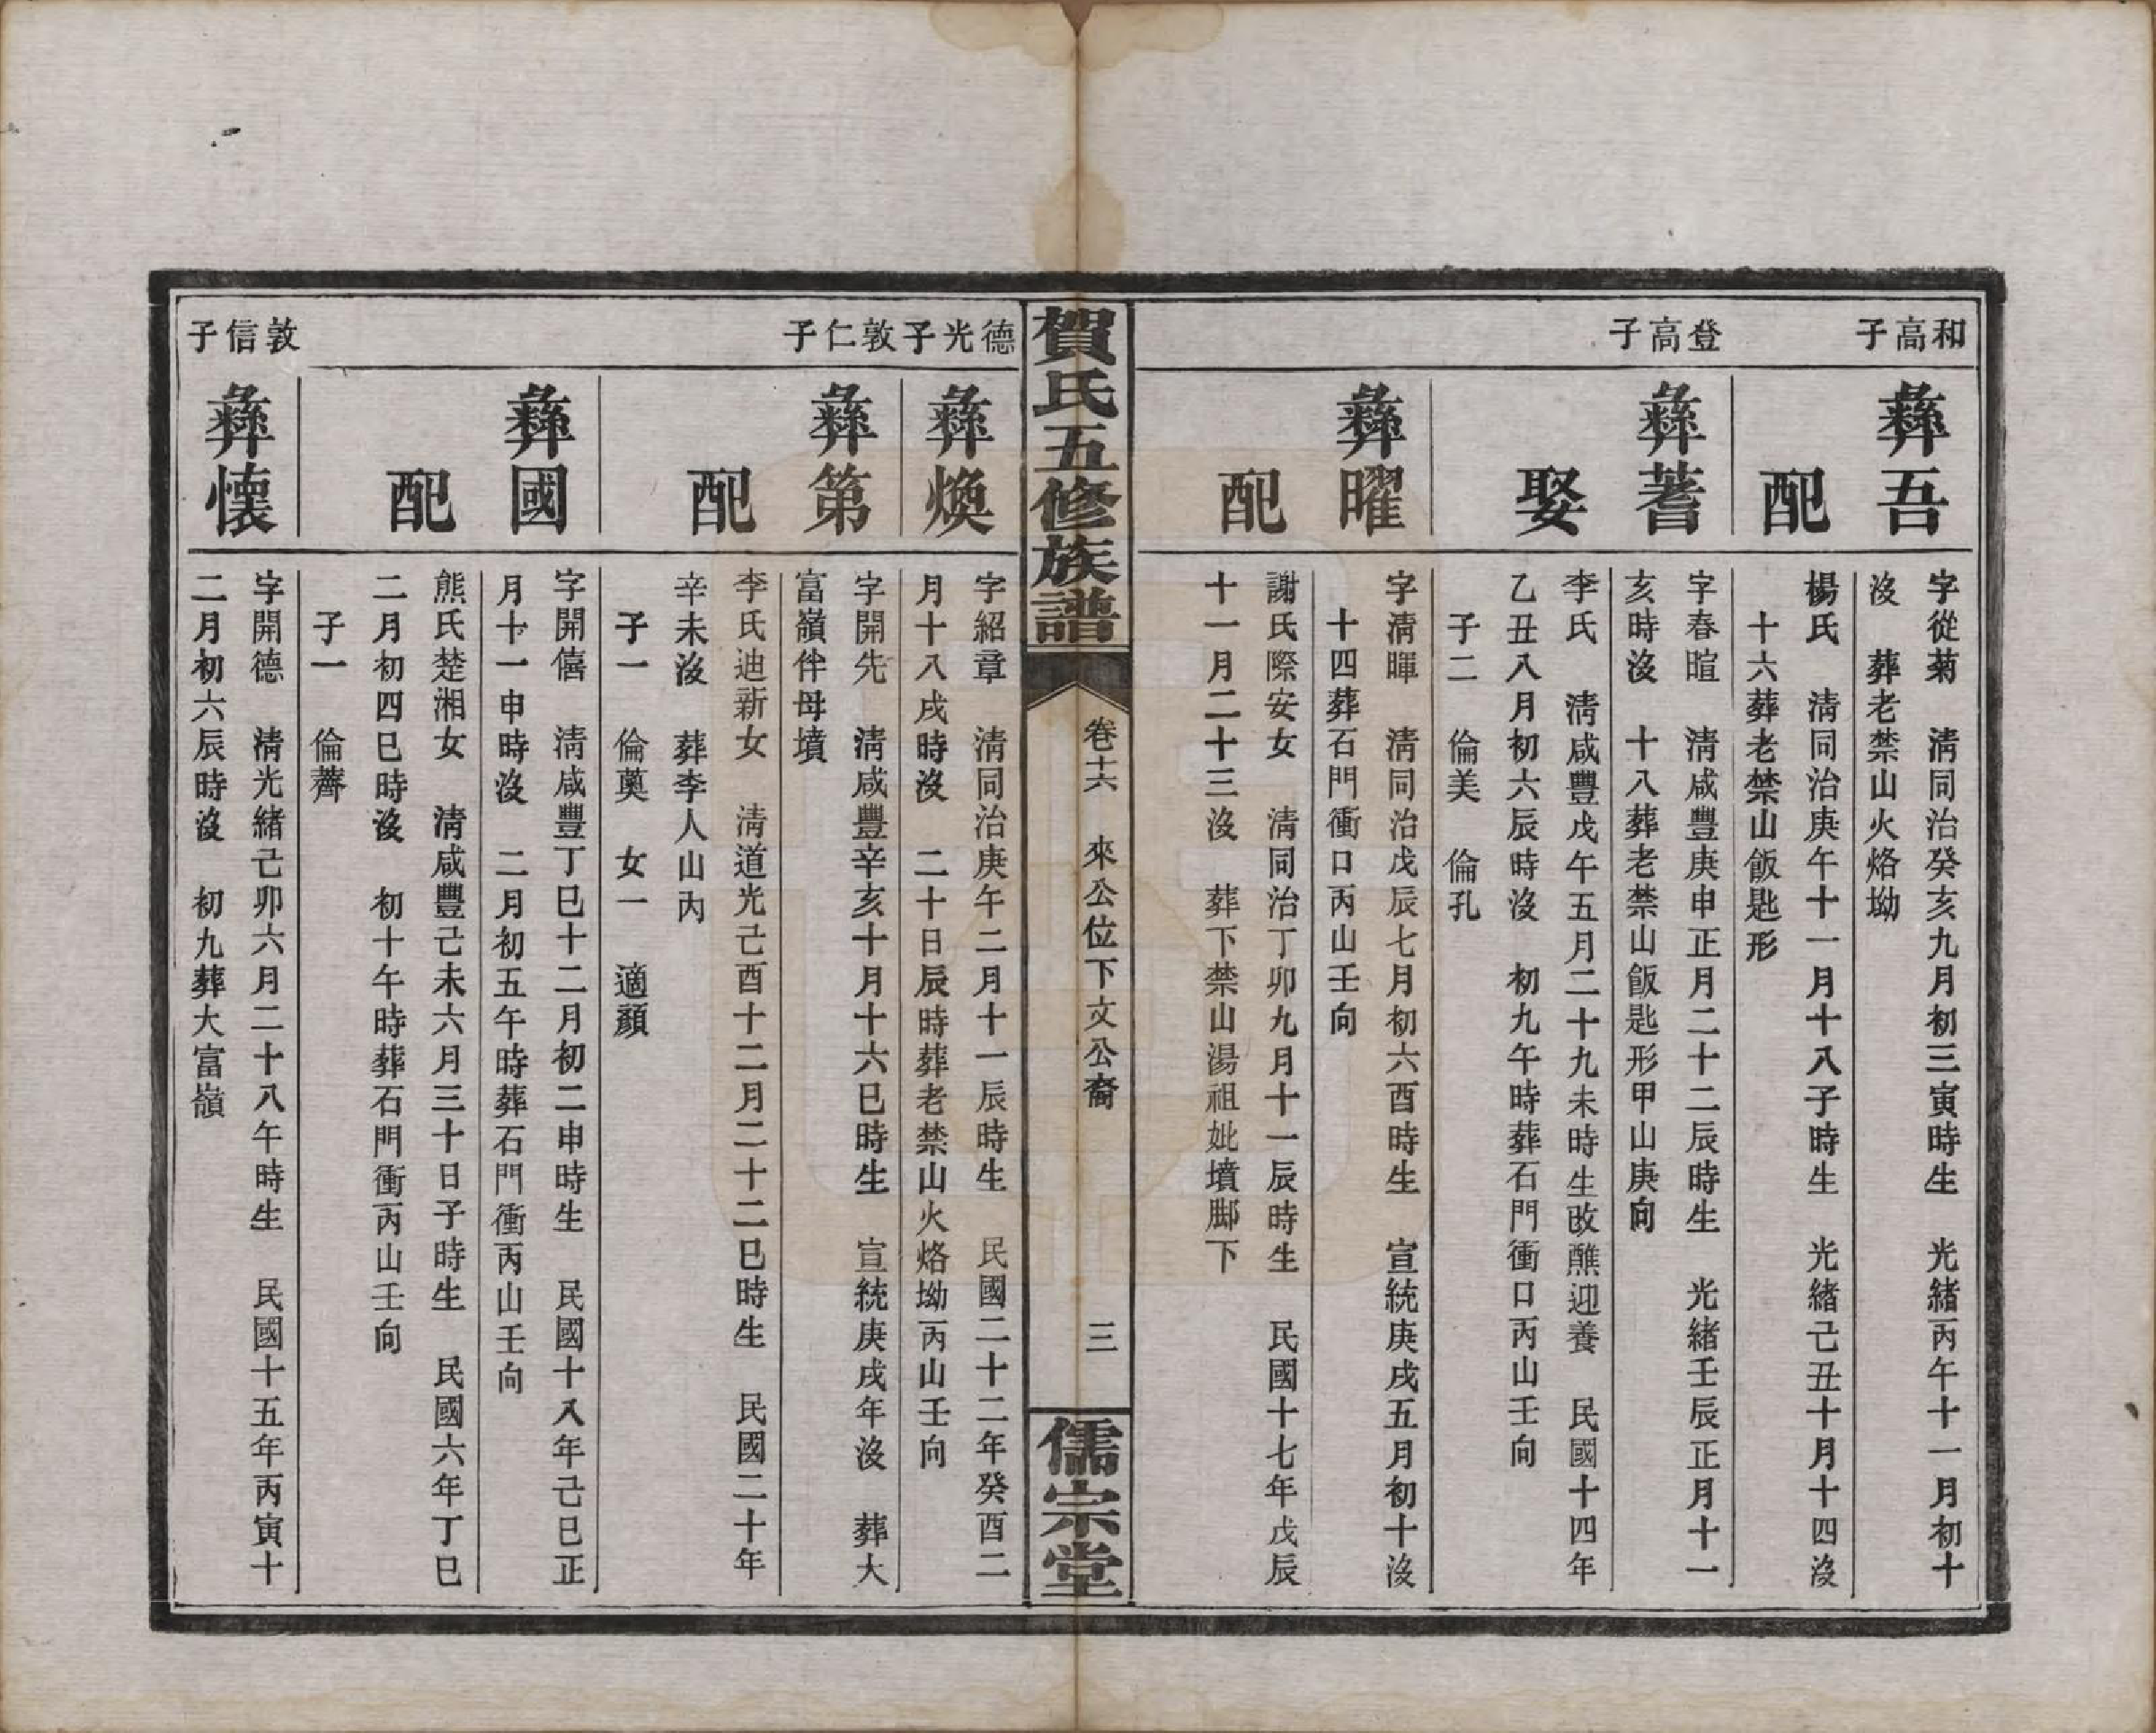 和高子
彝吾
字從菊　清同治癸亥九月初三寅時生　光緒丙午十一月初十
沒　葬老禁山火烙坳
配
楊氏　清同治庚午十一月十八子時生　光緒己丑十月十四沒
十六葬老禁山飯匙形
登高子
彝蓍
字春暄　清咸豐庚申正月二十二辰時生　光緒壬辰正月十一
亥時沒　十八葬老禁山飯匙形甲山庚向
娶
李氏　清咸豐戊午五月二十九未時生改醮迎養　民國十四年
乙丑八月初六辰時沒　初九午時葬石門衝口丙山壬向
子二　倫美　倫孔
彝曜
字清暉　清同治戊辰七月初六酉時生　宣統庚戌五月初十沒
十四葬石門衝口丙山壬向
配
謝氏際安女　清同治丁卯九月十一辰時生　民國十七年戊辰
十一月二十三沒　葬下禁山湯祖妣墳脚下
賀氏五修族譜
卷十六　來公位下文公裔　三
儒宗堂
德光子
彝煥
字紹章　清同治庚午二月十一辰時生　民國二十二年癸酉二
月十八戌時沒　二十日辰時葬老禁山火烙坳丙山壬向
敦仁子
彝第
字開先　清咸豐辛亥十月十六巳時生　宣統庚戌年沒　葬大
富嶺伴母墳
配
李氏迪新女　清道光己酉十二月二十二巳時生　民國二十年
辛未沒　葬李人山內
子一　倫奠　女一　適顏
彝國
字開僖　清咸豐丁巳十二月初二申時生　民國十八年己巳正
月十一申時沒　二月初五午時葬石門衝丙山壬向
配
熊氏楚湘女　清咸豐己未六月三十日子時生　民國六年丁巳
二月初四巳時沒　初十午時葬石門衝丙山壬向
子一　倫薺
敦信子
彝懷
字開德　清光緒己卯六月二十八午時生　民國十五年丙寅十
二月初六辰時沒　初九葬大富嶺